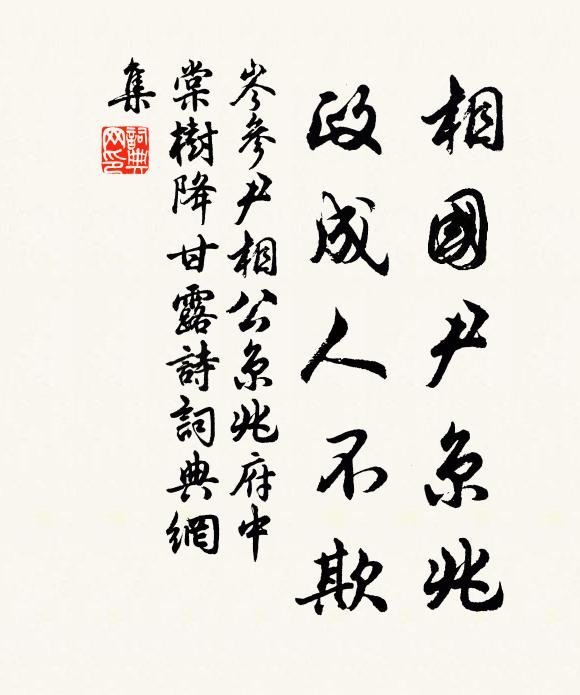 相國尹京兆
政成人不欺
岑參尹相公京兆府中
棠樹降甘露詩詞典網
集
詞典網印